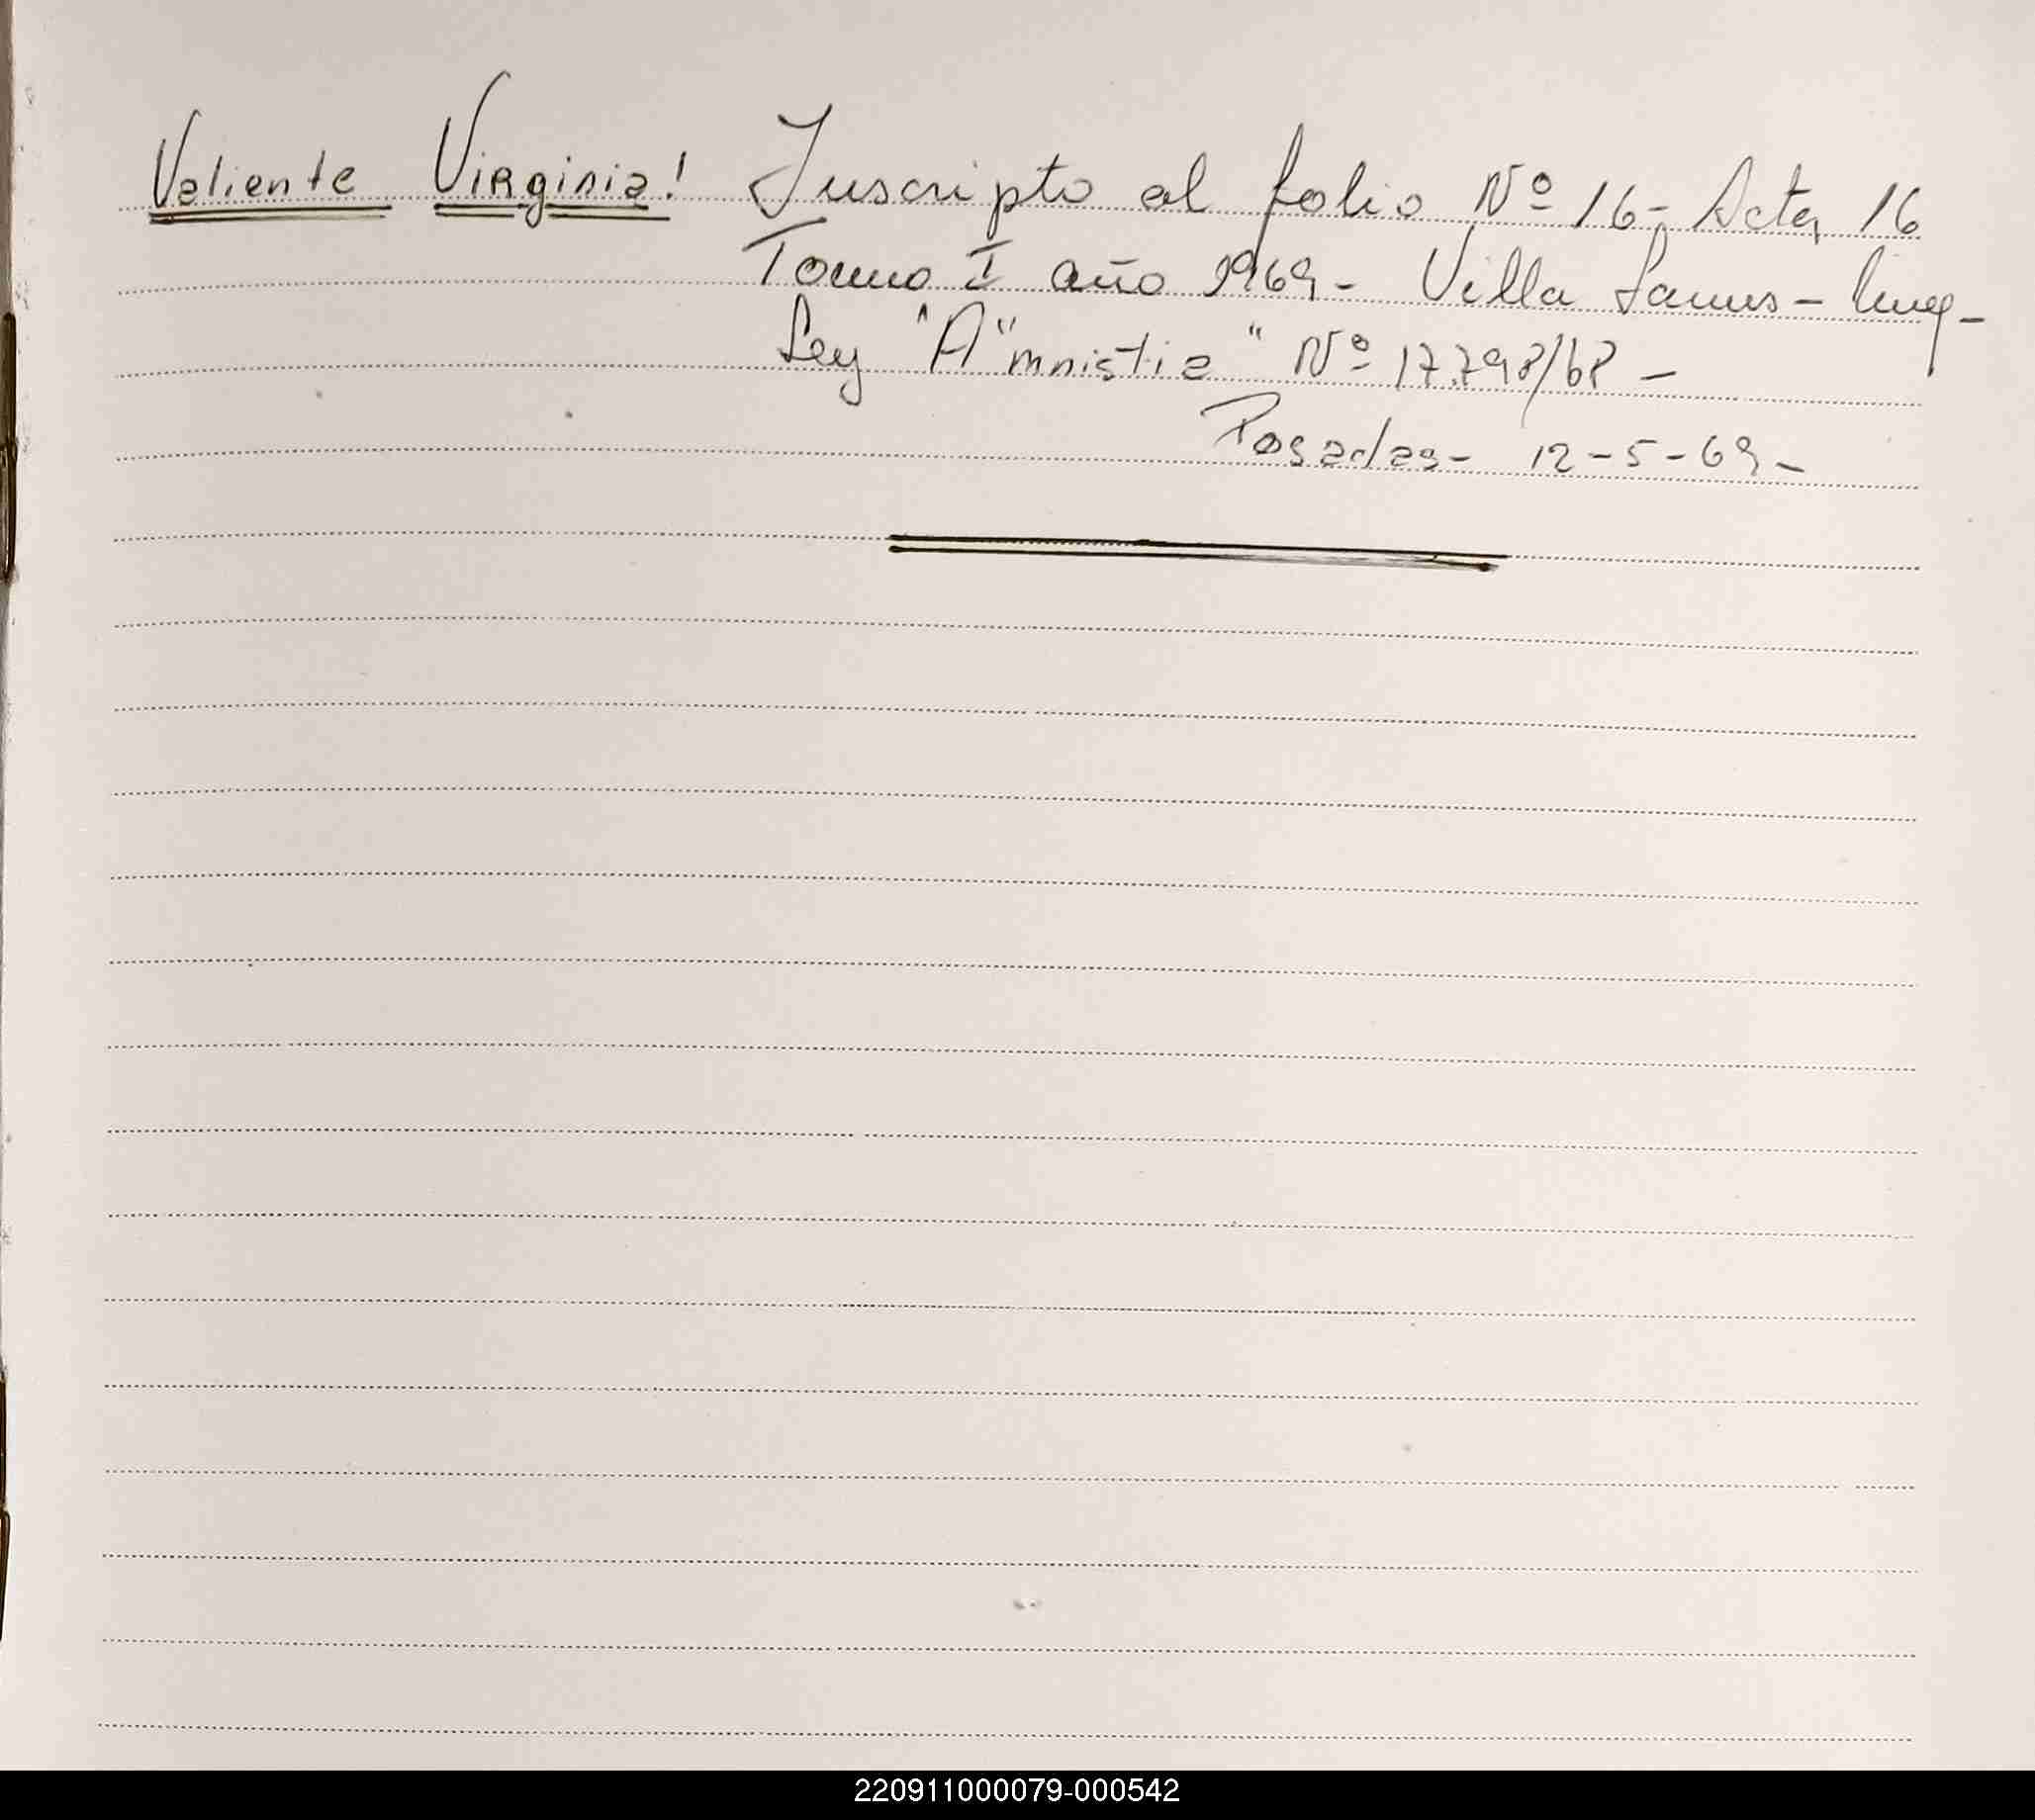 Valiente Virginia! Inscripto al folio Nº 16- Acta, 16
Tomo I año 1969- Villa Lanus-
Ley "A"mnistia" Nº 17.798/68-
Posadas- 12-5-69-
220911000079-000542